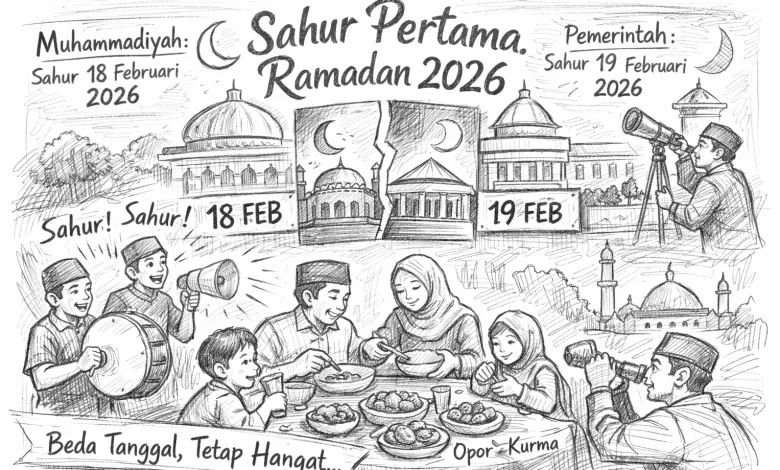 Muhammadiyah:
Sahur 18 Februari
2026
Sahur Pertama.
Ramadan 2026
Pemerintah:
Sahur 19 Februari
2026
Sahur! Sahur!
18 FEB
19 FEB
Beda Tanggal, Tetap Hangat...
Opor-Kurma